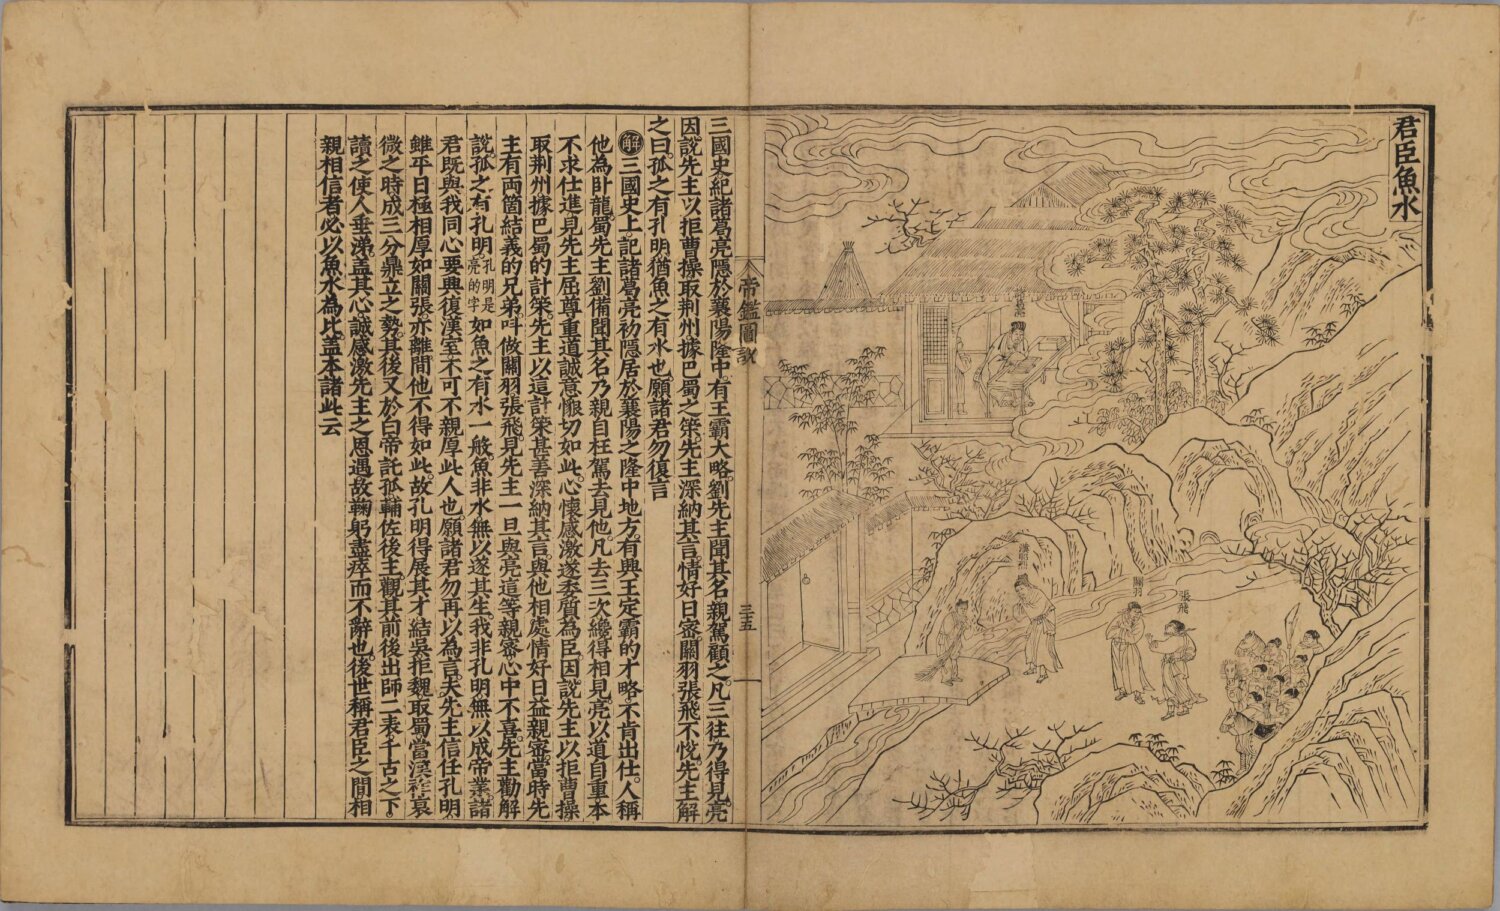 君臣魚水
諸葛亮
漢昭烈
關羽
張飛
帝鑑圖說
三五
三國史紀諸葛亮隱於襄陽隆中有王霸大略劉先主聞其名親駕顧之凡三往乃得見亮
因說先主以拒曹操取荆州據巴蜀之策先主深納其言情好日密關羽張飛不悅先主解
之曰孤之有孔明猶魚之有水也願諸君勿復言
解三國史上記諸葛亮初隱居於襄陽之隆中地方有興王定霸的才略不肯出仕人稱
他為卧龍蜀先主劉備聞其名乃親自枉駕去見他凡去三次纔得相見亮以道自重本
不求仕進見先主屈尊重道誠意懇切如此心懷感激遂委質為臣因說先主以拒曹操
取荆州據巴蜀的計策先主以這計策甚善深納其言與他相處情好日益親密當時先
主有两箇結義的兄弟呌做關羽張飛見先主一旦與亮這等親密心中不喜先主勸解
說孤之有孔明孔明是亮的字如魚之有水一般魚非水無以遂其生我非孔明無以成帝業諸
君既與我同心要興復漢室不可不親厚此人也願諸君勿再以為言夫先主信任孔明
雖平日極相厚如關張亦離間他不得如此故孔明得展其才結吳拒魏取蜀當漢祚衰
微之時成三分鼎立之勢其後又於白帝託孤輔佐後主觀其前後出師二表千古之下
讀之使人垂涕盖其心誠感激先主之恩遇故鞠躬盡瘁而不辭也後世稱君臣之間相
親相信者必以魚水為比盖本諸此云